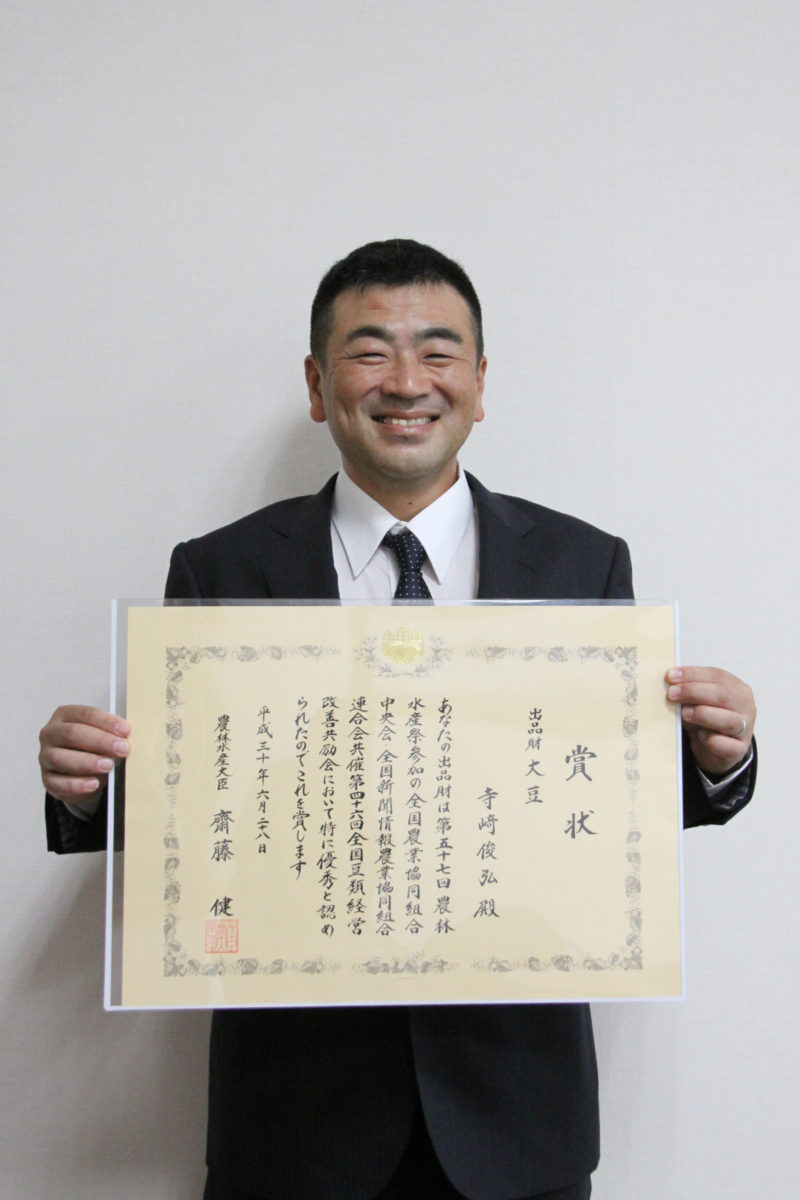 賞状
出品財 大豆
寺﨑俊弘殿
あなたの出品財は第五十七回農林
水産祭参加の全国農業協同組合
中央会 全国新聞情報農業協同組合
連合会共催第四十六回全国豆類経営
改善共励会において特に優秀と認め
られたのでこれを賞します
平成三十年六月二十八日
農林水産大臣 齋藤 健